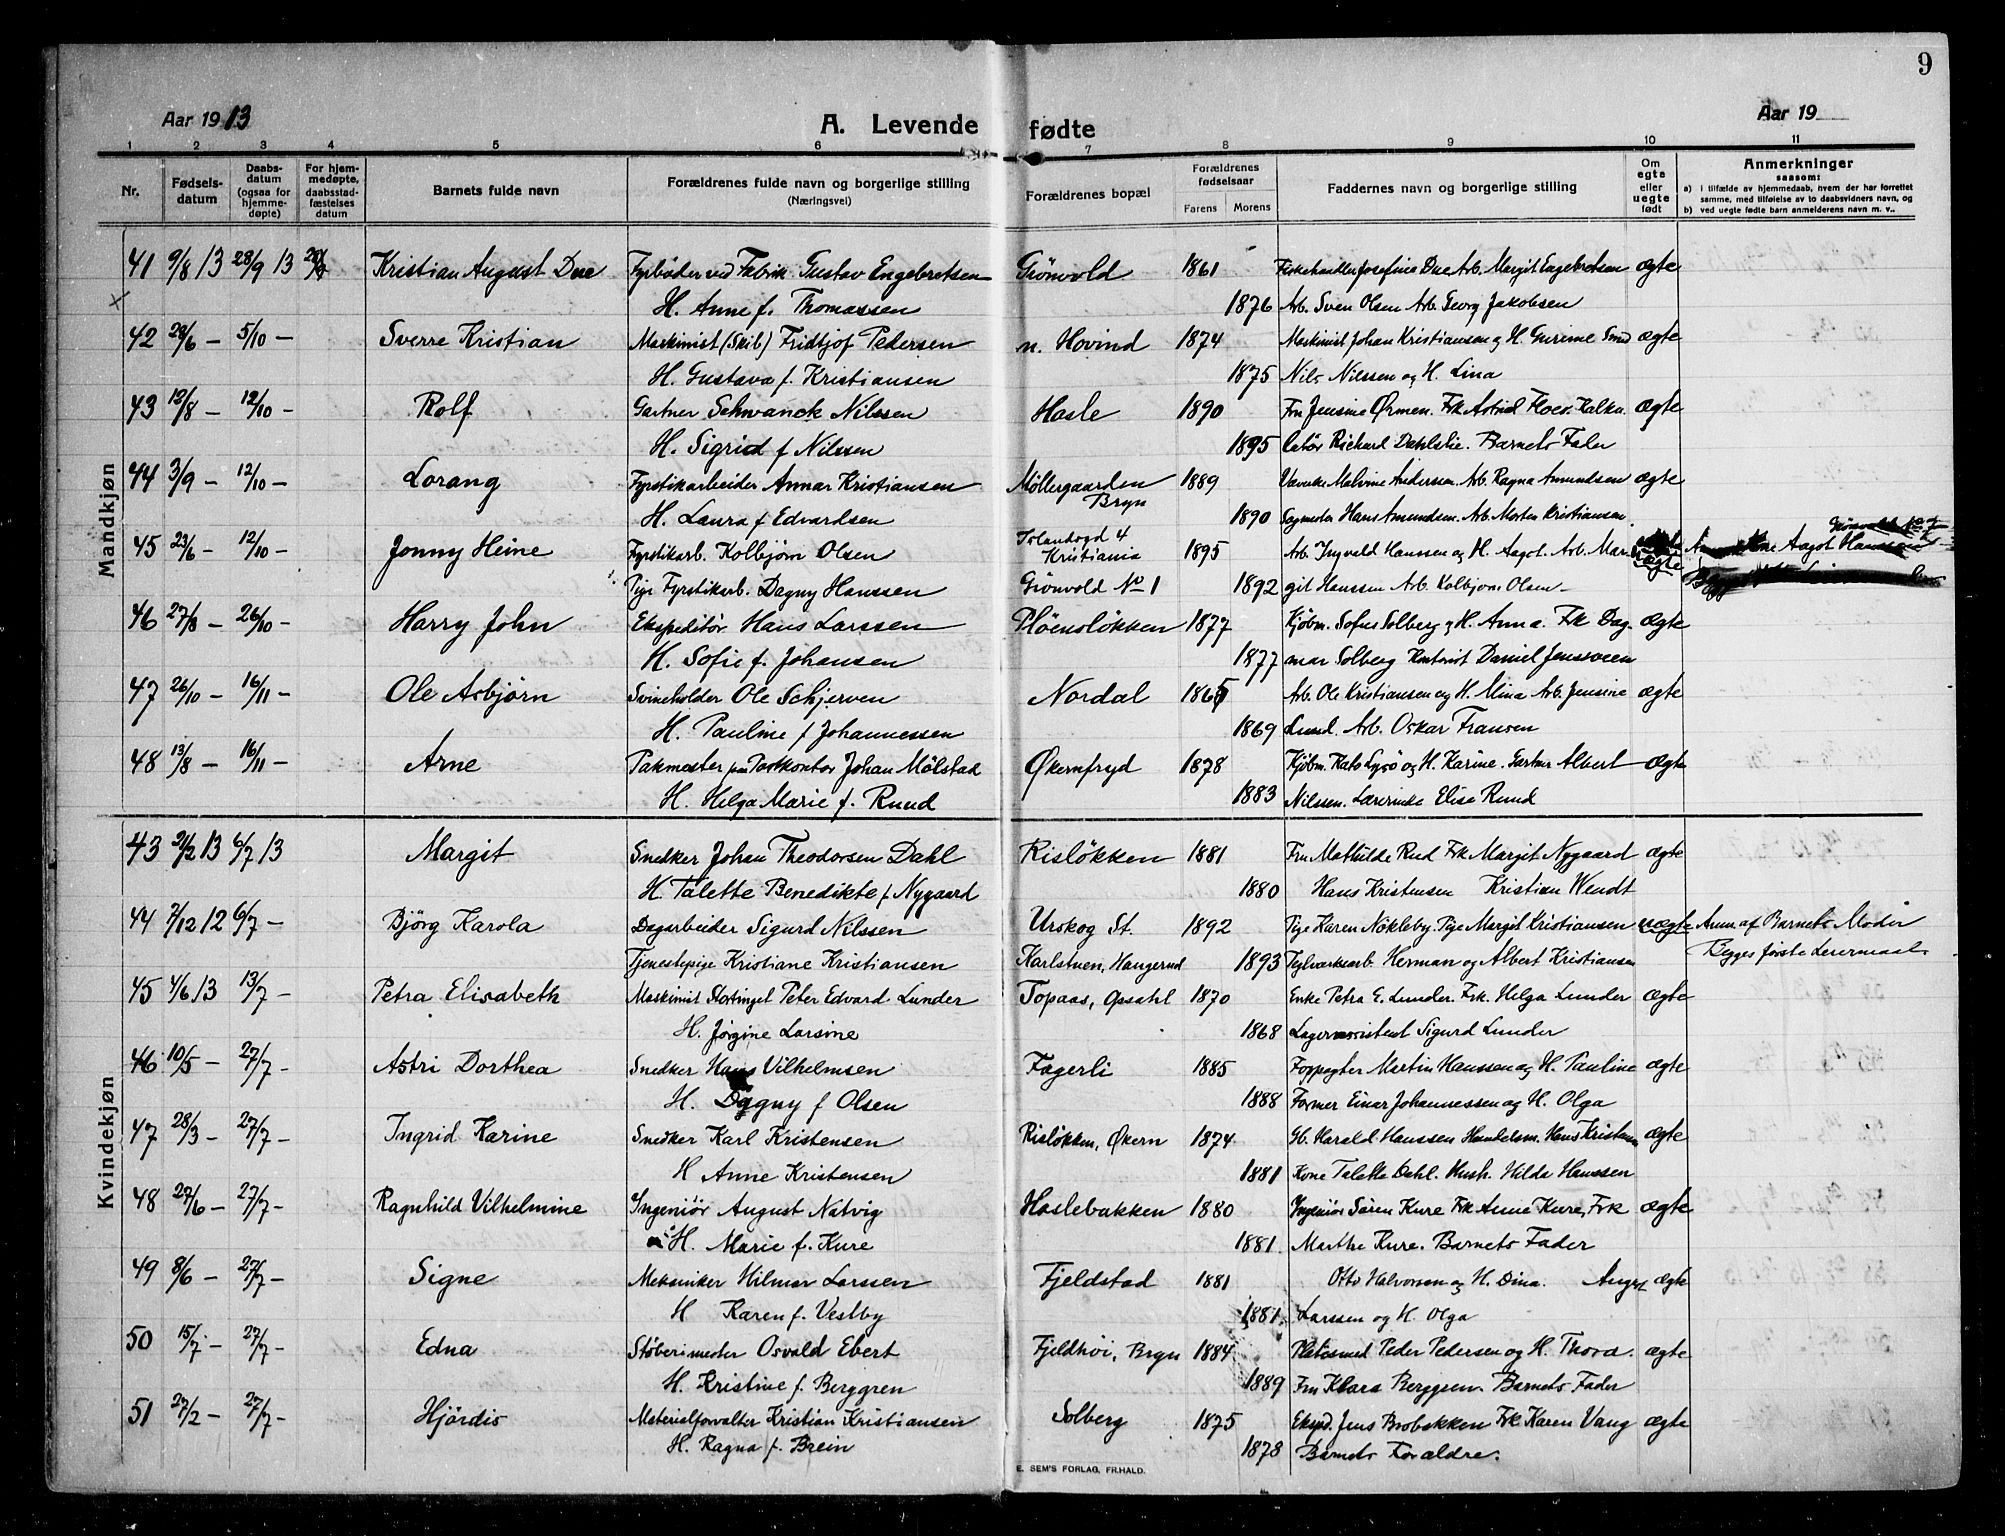 9
Aar 1913 A. Levende fødte Aar 19
1 2 3 4 5 6 7 8 9 10 11
Nr. Fødsels-datum Daabs-datum (ogsaa for hjemme-døpte) For hjem-medøpte, daabsstad-fæstelses datum Barnets fulde navn Forældrenes fulde navn og borgerlige stilling (Næringsvei) Forældrenes bopæl Forældrenes fødselsaar Farens Morens Faddernes navn og borgerlige stilling Om egte eller uegte født Anmerkninger saasom:
a) i tilfælde av hjemmedaab, hvem der har forrettet samme, med tilføielse av to daabsvidners navn, og
b) ved uegte fødte barn anmelderens navn m. v..
Mandkjøn
41 9/8 13 28/9 13 Kristian August Due Fyrbøder ved Fabrik Gustav Engebretsen Grönvold 1861 Fiskehandler Josefine Due Arb. Margit Engebretsen ægte
H. Anne f. Thomassen 1876 Arb. Sven Olsen Arb. Georg Jakobsen
42 28/6 – 5/10 – Sverre Kristian Maskinist (Skib) Fridtjof Pedersen n. Hovind 1874 Maskinist Johan Kristiansen og H. Gurine Smd ægte
H. Gustava f. Kristiansen 1875 Nils Nilssen og H. Lina
43 13/8 – 12/10 – Rolf Gartner Schwanck Nilssen Hasle 1890 Fru Jensine Ørmen. Frk Astrid Floer. Kalku. ægte
H. Sigrid f Nilssen 1895 latör Rickard Dahlslie. Barnets Fader
44 3/9 – 12/10 – Lorang Fyrstikarbeider Annar Kristiansen Møllergaarden Bryn 1889 Malvine Anderssen. Arb. Ragna Amundsen ægte
H. Laura f Edvardsen 1890 Sagmester Hans Amundsen. Arb. Morten Kristiansen.
45 23/6 – 12/10 – Jonny Heine Fyrstikarb. Kolbjørn Olsen Islandsgd 4 Kristiania 1895 Arb. Ingvald Hanssen og H. Aagot. Arb. Mar- uægte Aagot Hanssen Grönvold No 7
Pige Fyrstikarb. Dagny Hanssen Grönvold No 1 1892 git Hanssen Arb. Kolbjørn Olsen –
46 27/8 – 26/10 – Harry John Ekspeditör Hans Larssen Pløensløkken 1877 Kjøbm. Sofus Solberg og H. Anna. Frk Dag- ægte
H. Sofie f. Johansen 1877 mar Solberg Kontorist Daniel Jenssveen
47 26/10 – 16/11 – Ole Asbjørn Svineholder Ole Schjerven Nordal 1865 Arb. Ole Kristiansen og H. Mina Arb. Jensine ægte
H. Pauline f Johannessen 1869 Lund. Arb. Oskar Fransen
48 13/8 – 16/11 – Arne Pakmester paa Postkontor Johan Mølstad Økernfryd 1878 Kjøbm. Kato Lysö og H. Karine. Gartner Albert ægte
H. Helga Marie f. Ruud 1883 Nilssen. Lærerinde Elise Ruud
Kvindekjøn
43 21/2 13 6/7 13 Margit Snedker Johan Theodorsen Dahl Risløkken 1881 Fru Mathilde Rud Frk Margit Nygaard ægte
H. Talette Benedikte f. Nygaard 1880 Hans Kristensen Kristian Wendt
44 7/12 12 6/7 – Björg Karola Dagarbeider Sigurd Nilssen Urskog St. 1892 Pige Karen Nökleby. Pige Margit Kristiansen uægte Anm. af Barnets Moder
Tjenestepige Kristiane Kristiansen Karlstuen, Haugerud 1893 Teglverksarb. Herman og Albert Kristiansen Begges første Leiermaal.
45 4/6 13 13/7 – Petra Elisabeth Maskinist Stortinget Peter Edvard Lunder Topaas, Opsahl 1870 Enke Petra E. Lunder. Frk. Helga Lunder ægte
H. Jörgine Larsine 1868 Lagerassistent Sigurd Lunder
46 10/5 – 27/7 – Astri Dorthea Snedker Hans Vilhelmsen Fagerli 1885 Forpagter Martin Hanssen og H. Pauline ægte
H. Dagny f Olsen 1888 Former Einar Johannessen og H. Olga
47 28/3 – 27/7 – Ingrid Karine Snedker Karl Kristensen Risløkken, Økern 1874 Gb. Harald Hanssen Handelsm. Hans Kristensen ægte
H Anne Kristensen 1881 Kone Taletta Dahl. Hush. Hilda Hanssen
48 27/6 – 27/7 – Ragnhild Vilhelmine Ingeniör August Natvig Haslebakken 1880 Ingeniör Sören Kure Frk Anna Kure, Frk ægte
H. Marie f. Kure 1881. Marthe Kure. Barnets Fader
49 8/6 – 27/7 – Signe Mekaniker Hilmar Larssen Fjeldstad 1881 Otto Halvorsen og H. Dina. August ægte
H Karen f. Vestby 1881. Larssen og H. Olga
50 15/7 – 27/7 – Edna Støberimester Osvald Ebert Fjeldhöi, Bryn 1884 Peder Pedersen og H. Thora. ægte
H. Kristine f. Berggren 1889 Fru Klara Berggren. Barnets Fader
51 27/2 – 27/7 – Hjördis Materialforvalter Kristian Kristiansen Solberg 1875 Eksped. Jens Brobakken Frk. Karen Vang ægte
H. Ragna f. Brein 1878 Barnets Forældre.
E. SEM'S FORLAG, FR.HALD.